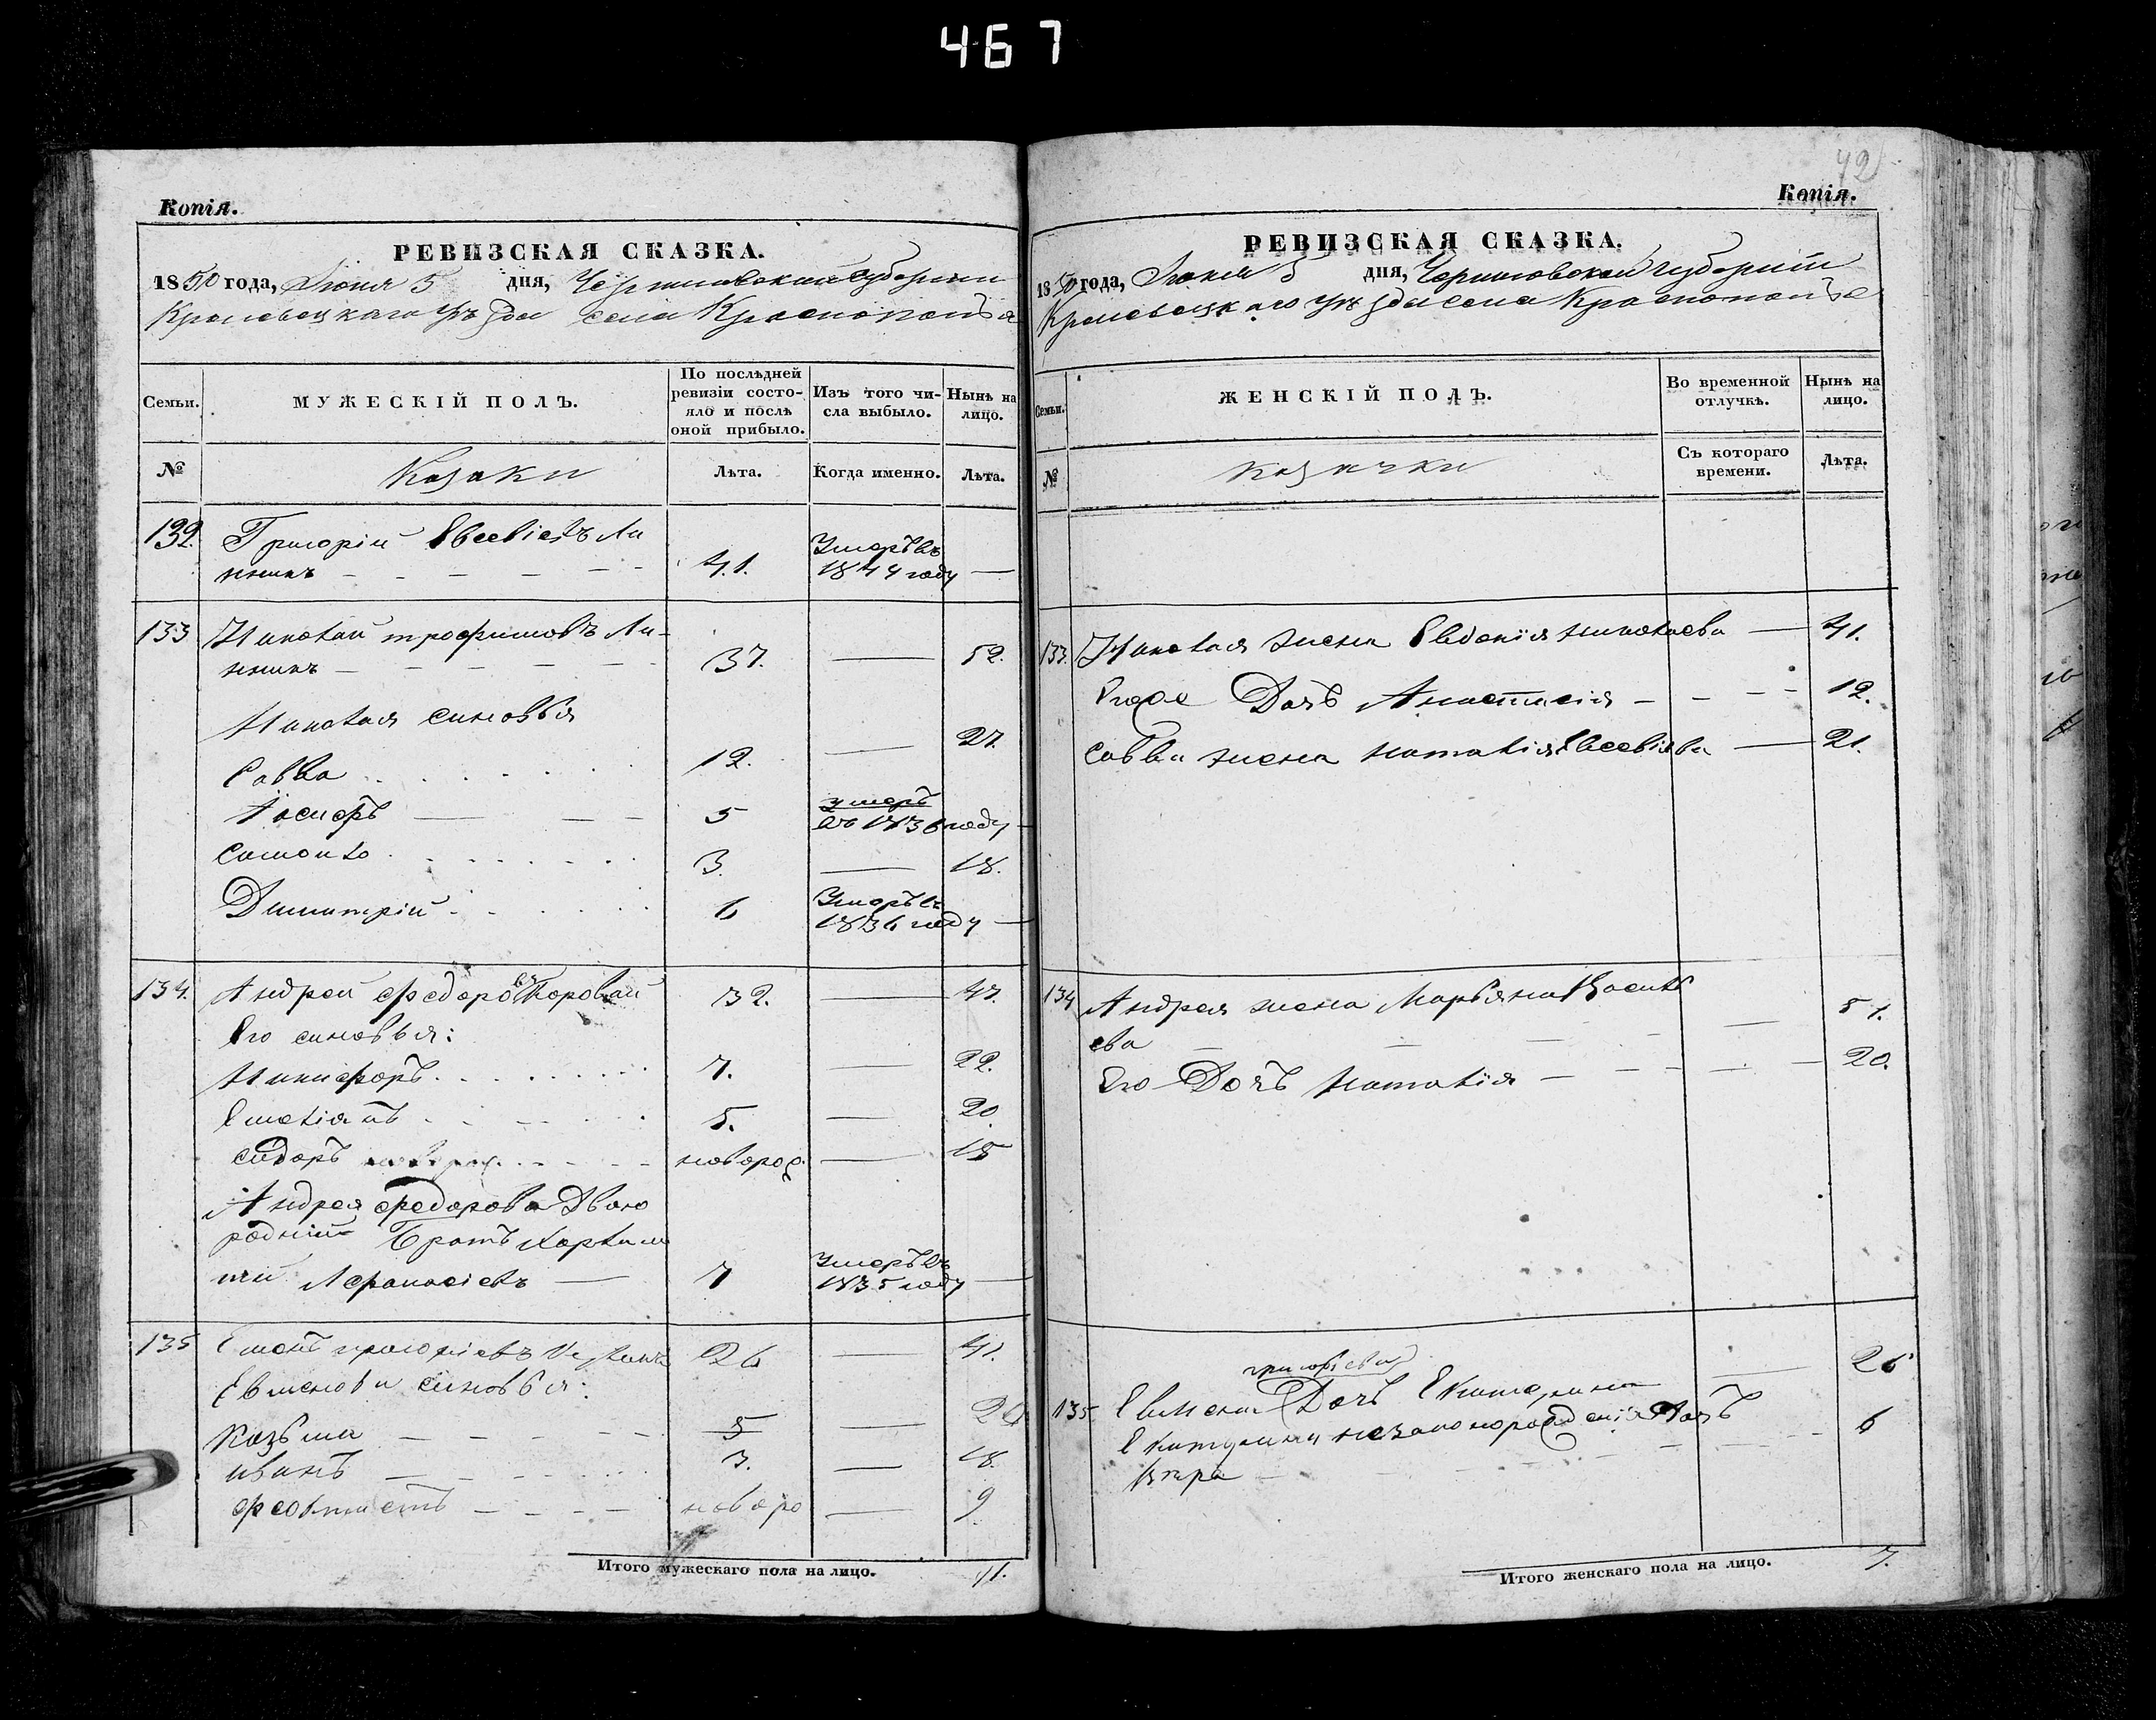 467
Копія.
РЕВИЗСКАЯ СКАЗКА.
1850 года, Июня 5 дня, Черниговской губернии
Кролевецкаго уѣзда села Краснополья
Семьи.
МУЖЕСКІЙ ПОЛЪ.
По послѣдней ревизіи состояло и послѣ оной прибыло.
Изъ того числа выбыло.
Нынѣ на лицо.
№
Козаки
Лѣта.
Когда именно.
Лѣта.
132. Григорій Евсевіевъ
41. Умеръ въ 1844 году —
133 Николай трофимовъ
37. — 52.
Николая синовья
Савва 12. — 27.
Іосифъ 5 умеръ въ 1836 году —
Самойло 3. — 18.
Димитрій 1/2 Умеръ въ 1836 году —
134. Андрей федоровъ Коровай 32. — 47.
Его синовья:
Никифоръ 7. — 22.
Емеліянъ 5. — 20
сидоръ новород. — 15
Андрея федорова Двою
родний Братъ
Афанасіевъ — 7 Умеръ въ 1835 году —
135 григоріевъ 26 — 41.
Евменова синовья:
Козьма 5 — 20
иванъ 3. — 18.
феоктистъ новоро — 9
Итого мужескаго пола на лицо. 11.
42
Копія.
РЕВИЗСКАЯ СКАЗКА.
1850 года, Июня 5 дня, Черниговской губерніи
Кролевецкаго уѣзда села Краснополья
Семьи.
ЖЕНСКІЙ ПОЛЪ.
Во временной отлучкѣ.
Нынѣ на лицо.
№
козачки
Съ котораго времени.
Лѣта.
133. Николая жена Евдокія николаева — 41.
Дочь Анастасія — 12.
Саввы жена наталія Евсевіева — 21.
134 Андрея жена Марьяна Василь
ева — 51.
Его Дочь наталія — 20.
григоріева
135 Евмена Дочь Екатерина — 26
Екатерины незаконорожденія Дочь
Вѣра — 6
Итого женскаго пола на лицо. 7.